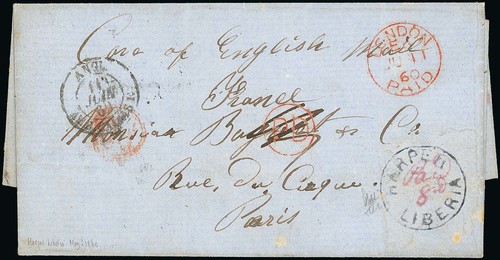 Care of English Mail
France
Monsieur
& Co.
Rue du Cirque.
Paris
LONDON
JU 11
60
PAID
ANGL.
JUIN
PD
HARPER
LIBERIA
Paid
8
Harper Liberia May 1860